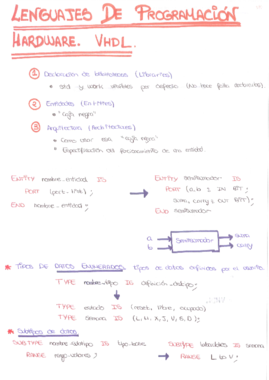 LENGUAJES DE PROGRAMACIÓN
HARDWARE. VHDL.
① Declaración de bibliotecas (Libraries)
• std y work visibles por defecto (No hace falta declararlas).
② Entidades (Entities)
• "caja negra"
③ Arquitectura (Architectures)
• Como usar esa "caja negra"
• Especificación del funcionamiento de una entidad.
ENTITY nombre_entidad IS
PORT (port-list);
END nombre_entidad;
ENTITY semisumador IS
PORT (a,b : IN BIT;
suma, carry : OUT BIT);
END semisumador
a
b
Semisumador
suma
carry
* TIPOS DE DATOS ENUMERADOS: tipos de datos definidos por el usuario.
TYPE nombre-tipo IS definición-de tipo;
TYPE estado IS (reset, libre, ocupado)
TYPE semana IS (L, M, X, J, V, S, D);
* Subtipos de datos
SUBTYPE nombre subtipo IS tipo-base
RANGE rango-valores;
SUBTYPE laborables IS semana
RANGE L to V;